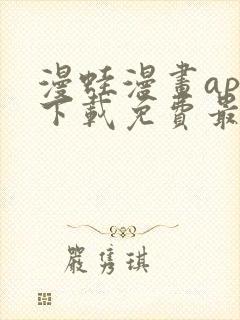 漫蛙漫畫ap
下載免費最
嚴雋琪